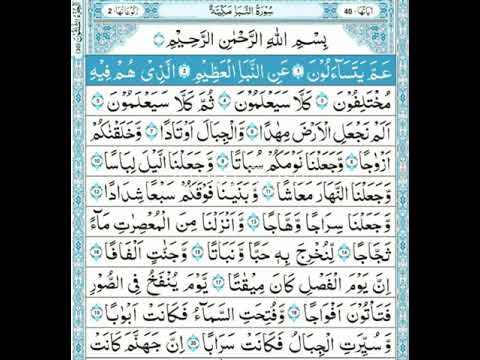 اٰیاتھا ٤٠ سُوْرَةُ النَّبَاِ مَكِّيَّةٌ رکوعاتھا ٢
بِسْمِ اللّٰهِ الرَّحْمٰنِ الرَّحِيْمِ
عَمَّ يَتَسَآءَلُوْنَ ۝١ عَنِ النَّبَاِ الْعَظِيْمِ ۝٢ الَّذِيْ هُمْ فِيْهِ
مُخْتَلِفُوْنَ ۝٣ كَلَّا سَيَعْلَمُوْنَ ۝٤ ثُمَّ كَلَّا سَيَعْلَمُوْنَ ۝٥
اَلَمْ نَجْعَلِ الْاَرْضَ مِهٰدًا ۝٦ وَّالْجِبَالَ اَوْتَادًا ۝٧ وَّخَلَقْنٰكُمْ
اَزْوَاجًا ۝٨ وَّجَعَلْنَا نَوْمَكُمْ سُبَاتًا ۝٩ وَّجَعَلْنَا الَّيْلَ لِبَاسًا ۝١٠
وَّجَعَلْنَا النَّهَارَ مَعَاشًا ۝١١ وَّبَنَيْنَا فَوْقَكُمْ سَبْعًا شِدَادًا ۝١٢
وَّجَعَلْنَا سِرَاجًا وَّهَّاجًا ۝١٣ وَّاَنْزَلْنَا مِنَ الْمُعْصِرٰتِ مَآءً
ثَجَّاجًا ۝١٤ لِّنُخْرِجَ بِهٖ حَبًّا وَّنَبَاتًا ۝١٥ وَّجَنّٰتٍ اَلْفَافًا ۝١٦
اِنَّ يَوْمَ الْفَصْلِ كَانَ مِيْقَاتًا ۝١٧ يَّوْمَ يُنْفَخُ فِي الصُّوْرِ
فَتَاْتُوْنَ اَفْوَاجًا ۝١٨ وَّفُتِحَتِ السَّمَآءُ فَكَانَتْ اَبْوَابًا ۝١٩
وَّسُيِّرَتِ الْجِبَالُ فَكَانَتْ سَرَابًا ۝٢٠ اِنَّ جَهَنَّمَ كَانَتْ